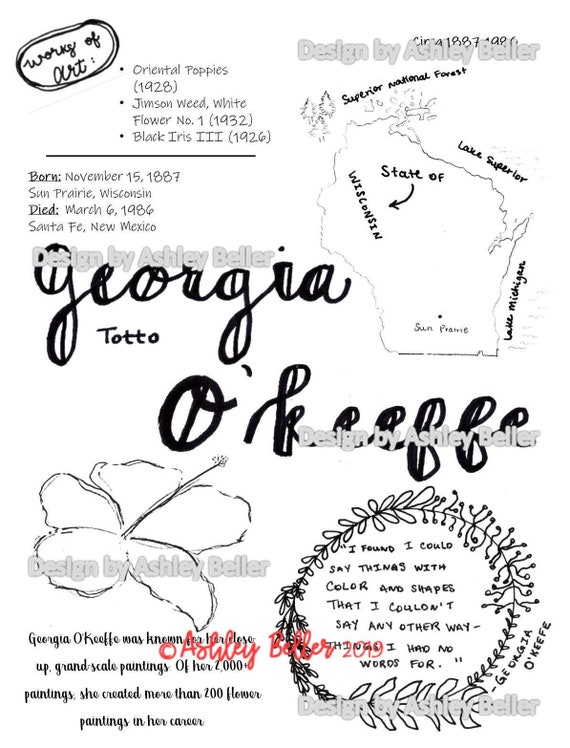 works of
art:
• Oriental Poppies
(1928)
• Jimson Weed, White
Flower No. 1 (1932)
• Black Iris III (1926)
Circa 1887-1986
Design by Ashley Beller
Superior National Forest
Lake Superior
State of
WISCONSIN
Lake Michigan
Sun Prairie
Born: November 15, 1887
Sun Prairie, Wisconsin
Died: March 6, 1986
Santa Fe, New Mexico
Design by Ashley Beller
Georgia
Totto
O'keeffe
Design by Ashley Beller
Design by Ashley Beller
"I FOUND I COULD
SAY THINGS WITH
COLOR AND SHAPES
THAT I COULDN'T
SAY ANY OTHER WAY-
THINGS I HAD NO
WORDS FOR."
-GEORGIA
O'KEEFFE
Georgia O'Keeffe was known for her close-
up, grand-scale paintings. Of her 2,000+
paintings, she created more than 200 flower
paintings in her career
© Ashley Beller 2019
Design by Ashley Beller